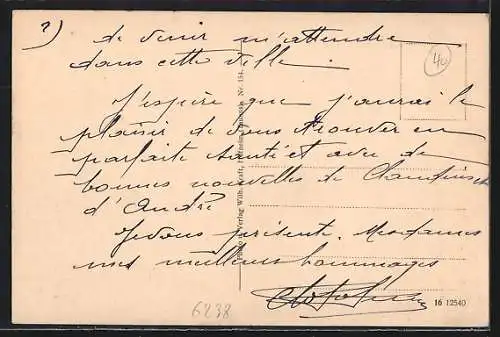 2) de venir m'attendre
40
dans cette ville.
J'espère que j'aurai le
plaisir de vous trouver en
parfaite santé et avec de
bonnes nouvelles de
d'André
Je vous présente, Mesdames
mes meilleurs hommages
16 12540
6238